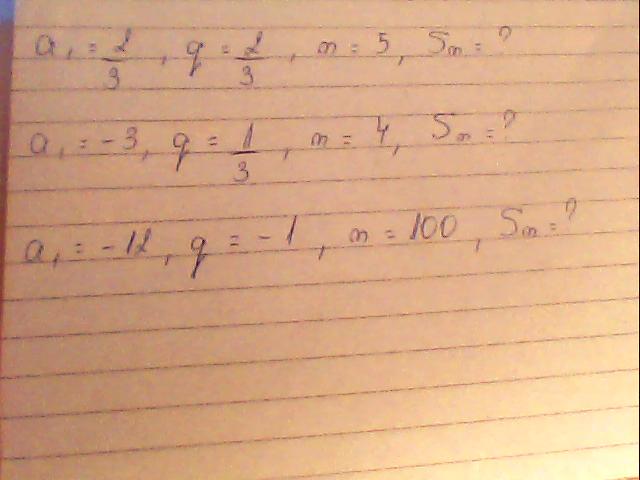 a₁ = 2/3, q = 2/3, n = 5, Sₙ = ?
a₁ = -3, q = 1/3, n = 4, Sₙ = ?
a₁ = -12, q = -1, n = 100, Sₙ = ?